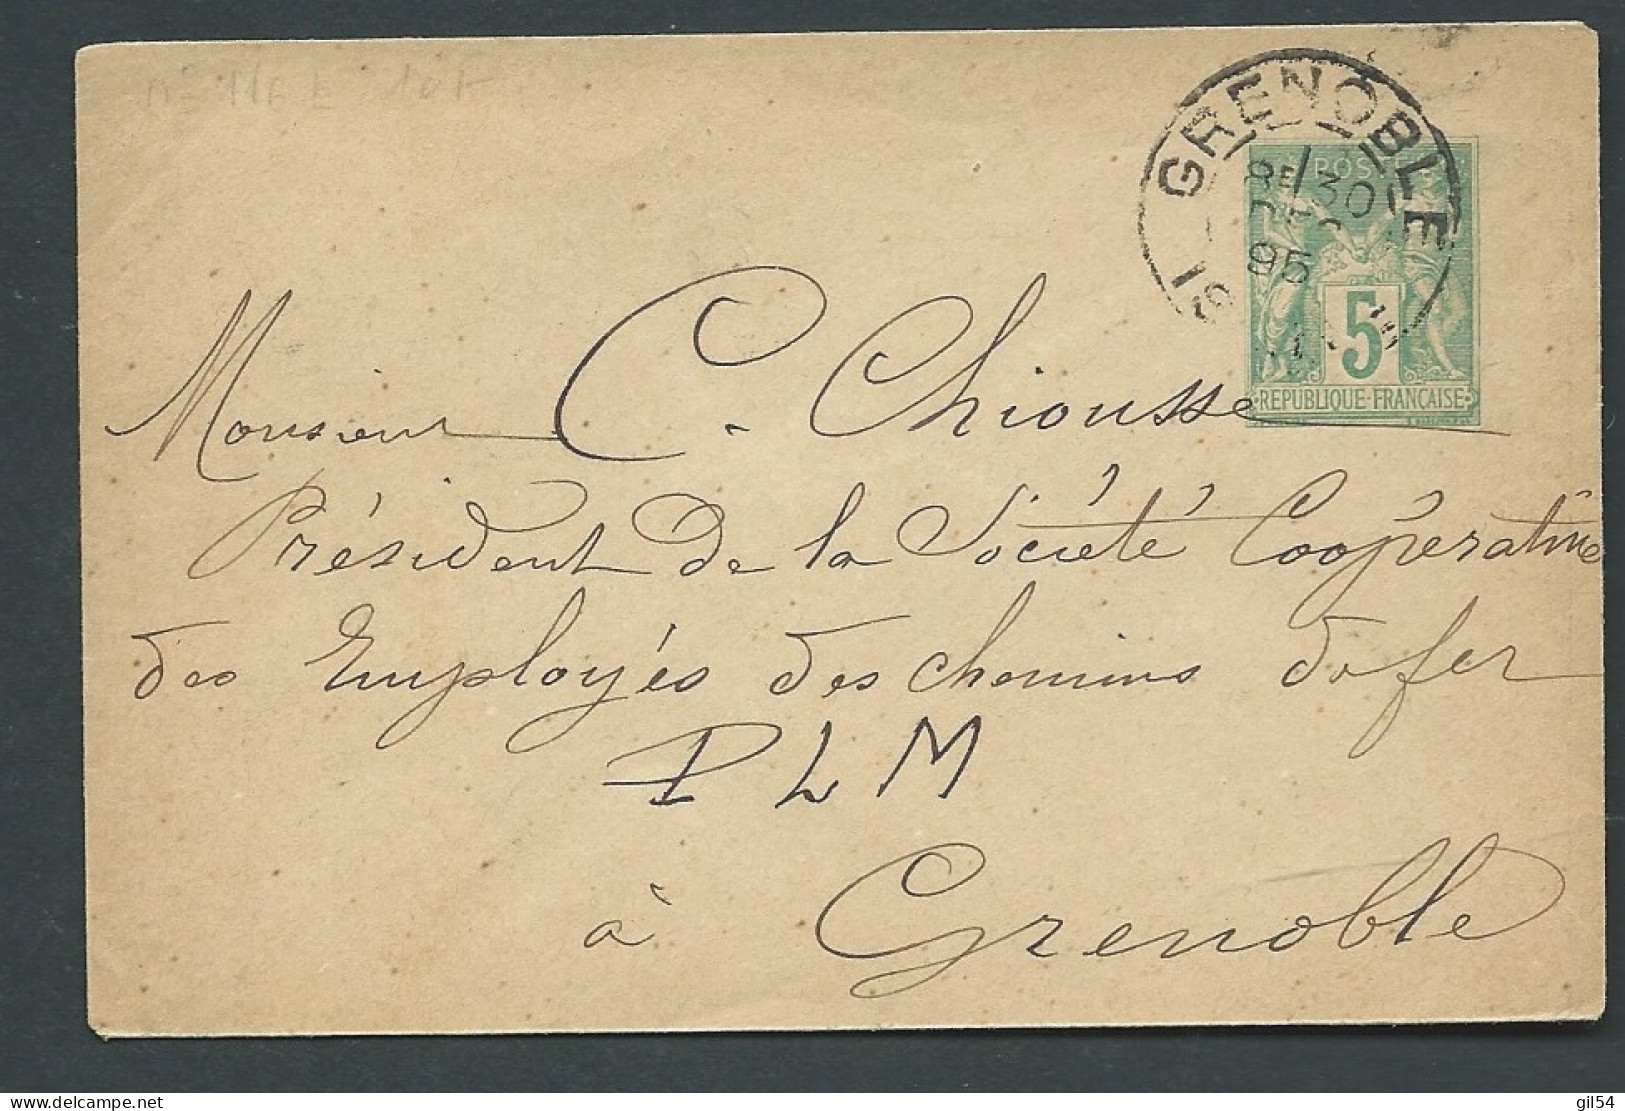 GRENOBLE
8E/30
95
POSTES
5
REPUBLIQUE-FRANCAISE
Monsieur C. Chiousse
Président de la Société Coopérative
des Employés des chemins de fer
PLM
à Grenoble
gil54